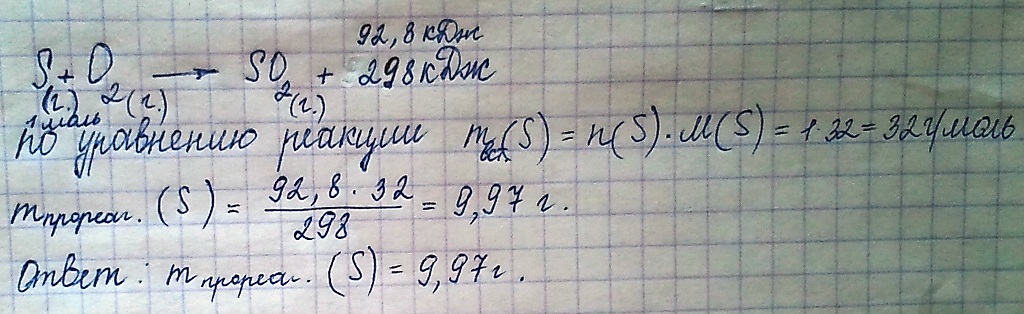 92,8 кДж
S + O₂ → SO₂ + 298 кДж
(г.) (г.) (г.)
1 моль
по уравнению реакции m вст. (S) = n(S)·M(S) = 1·32 = 32 г/моль
m прореаг. (S) = 92,8·32 / 298 = 9,97 г.
Ответ: m прореаг. (S) = 9,97 г.